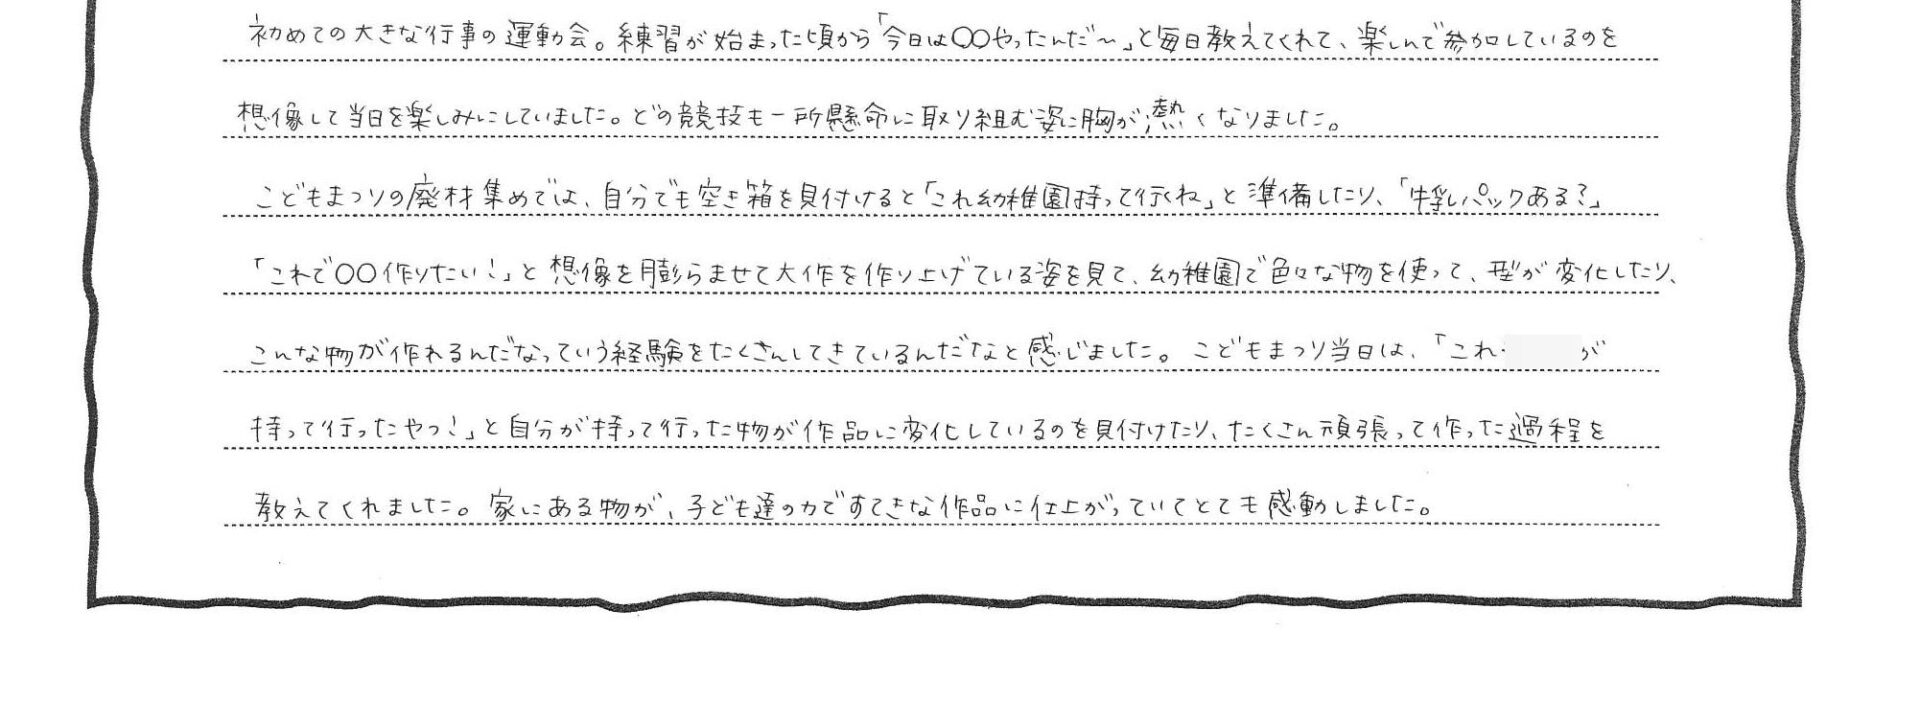 初めての大きな行事の運動会。練習が始まった頃から「今日は〇〇やったんだ〜」と毎日教えてくれて、楽しんで参加しているのを
想像して当日を楽しみにしていました。どの競技も一所懸命に取り組む姿に胸が熱くなりました。
こどもまつりの廃材集めでは、自分でも空き箱を見付けると「これ幼稚園持って行くね」と準備したり、「牛乳パックある?」
「これで〇〇作りたい!」と想像を膨らませて大作を作り上げている姿を見て、幼稚園で色々な物を使って、型が変化したり、
こんな物が作れるんだなっていう経験をたくさんしてきているんだなと感じました。こどもまつり当日は、「これ が
持って行ったやつ!」と自分が持って行った物が作品に変化しているのを見付けたり、たくさん頑張って作った過程を
教えてくれました。家にある物が、子ども達の力ですてきな作品に仕上がっていてとても感動しました。